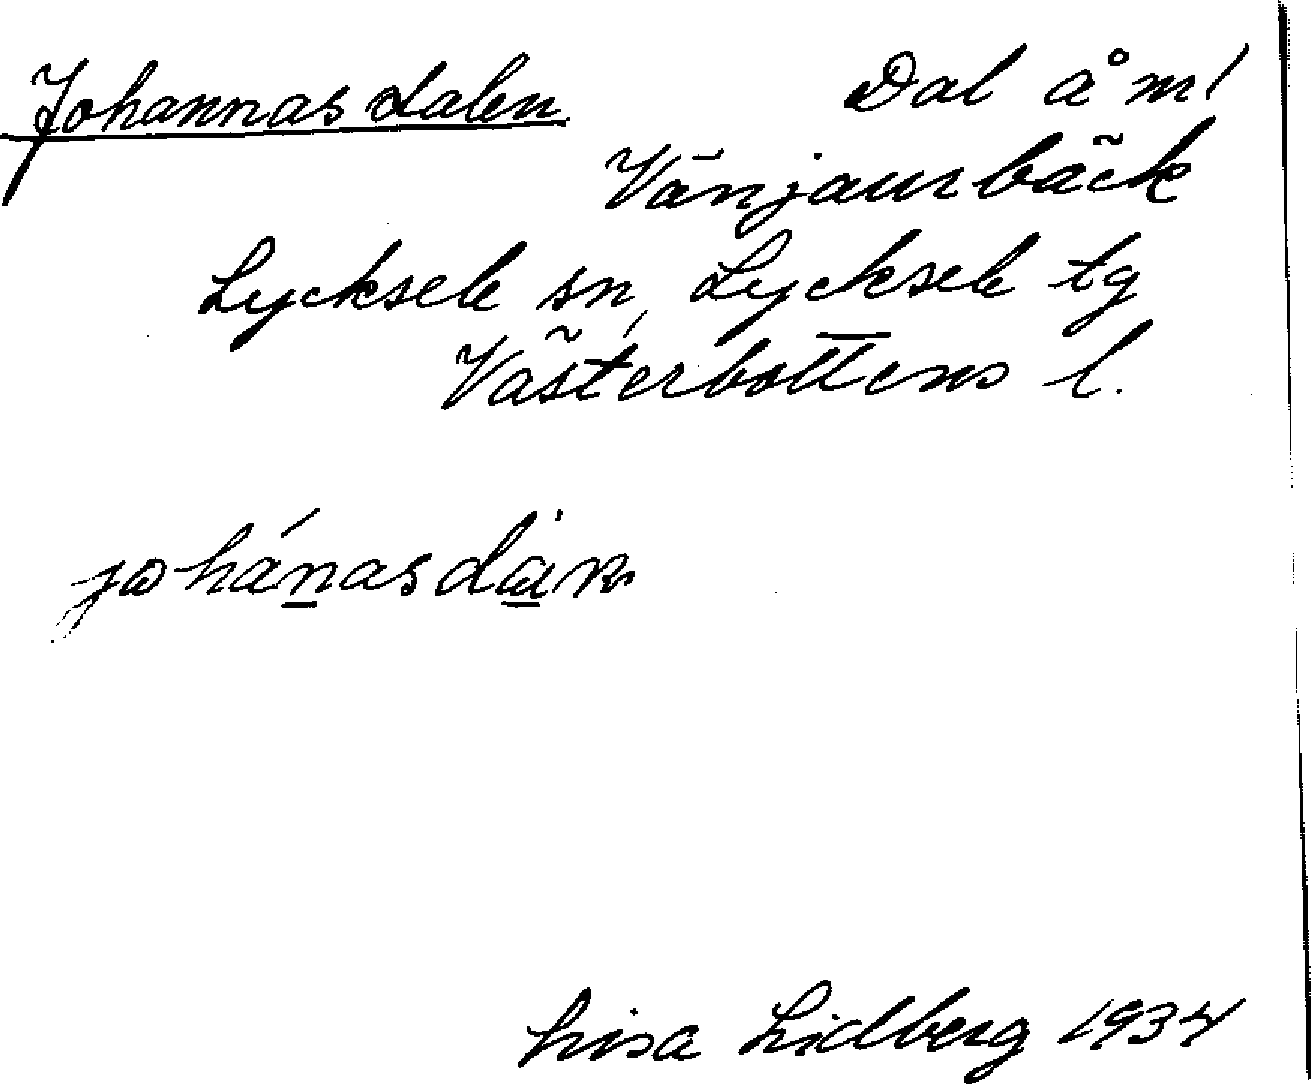 Johannasdalen Dal å m/
Vänjaurbäck
Lycksele sn, Lycksele tg
Västerbottens l.
Lisa Lidberg 1934